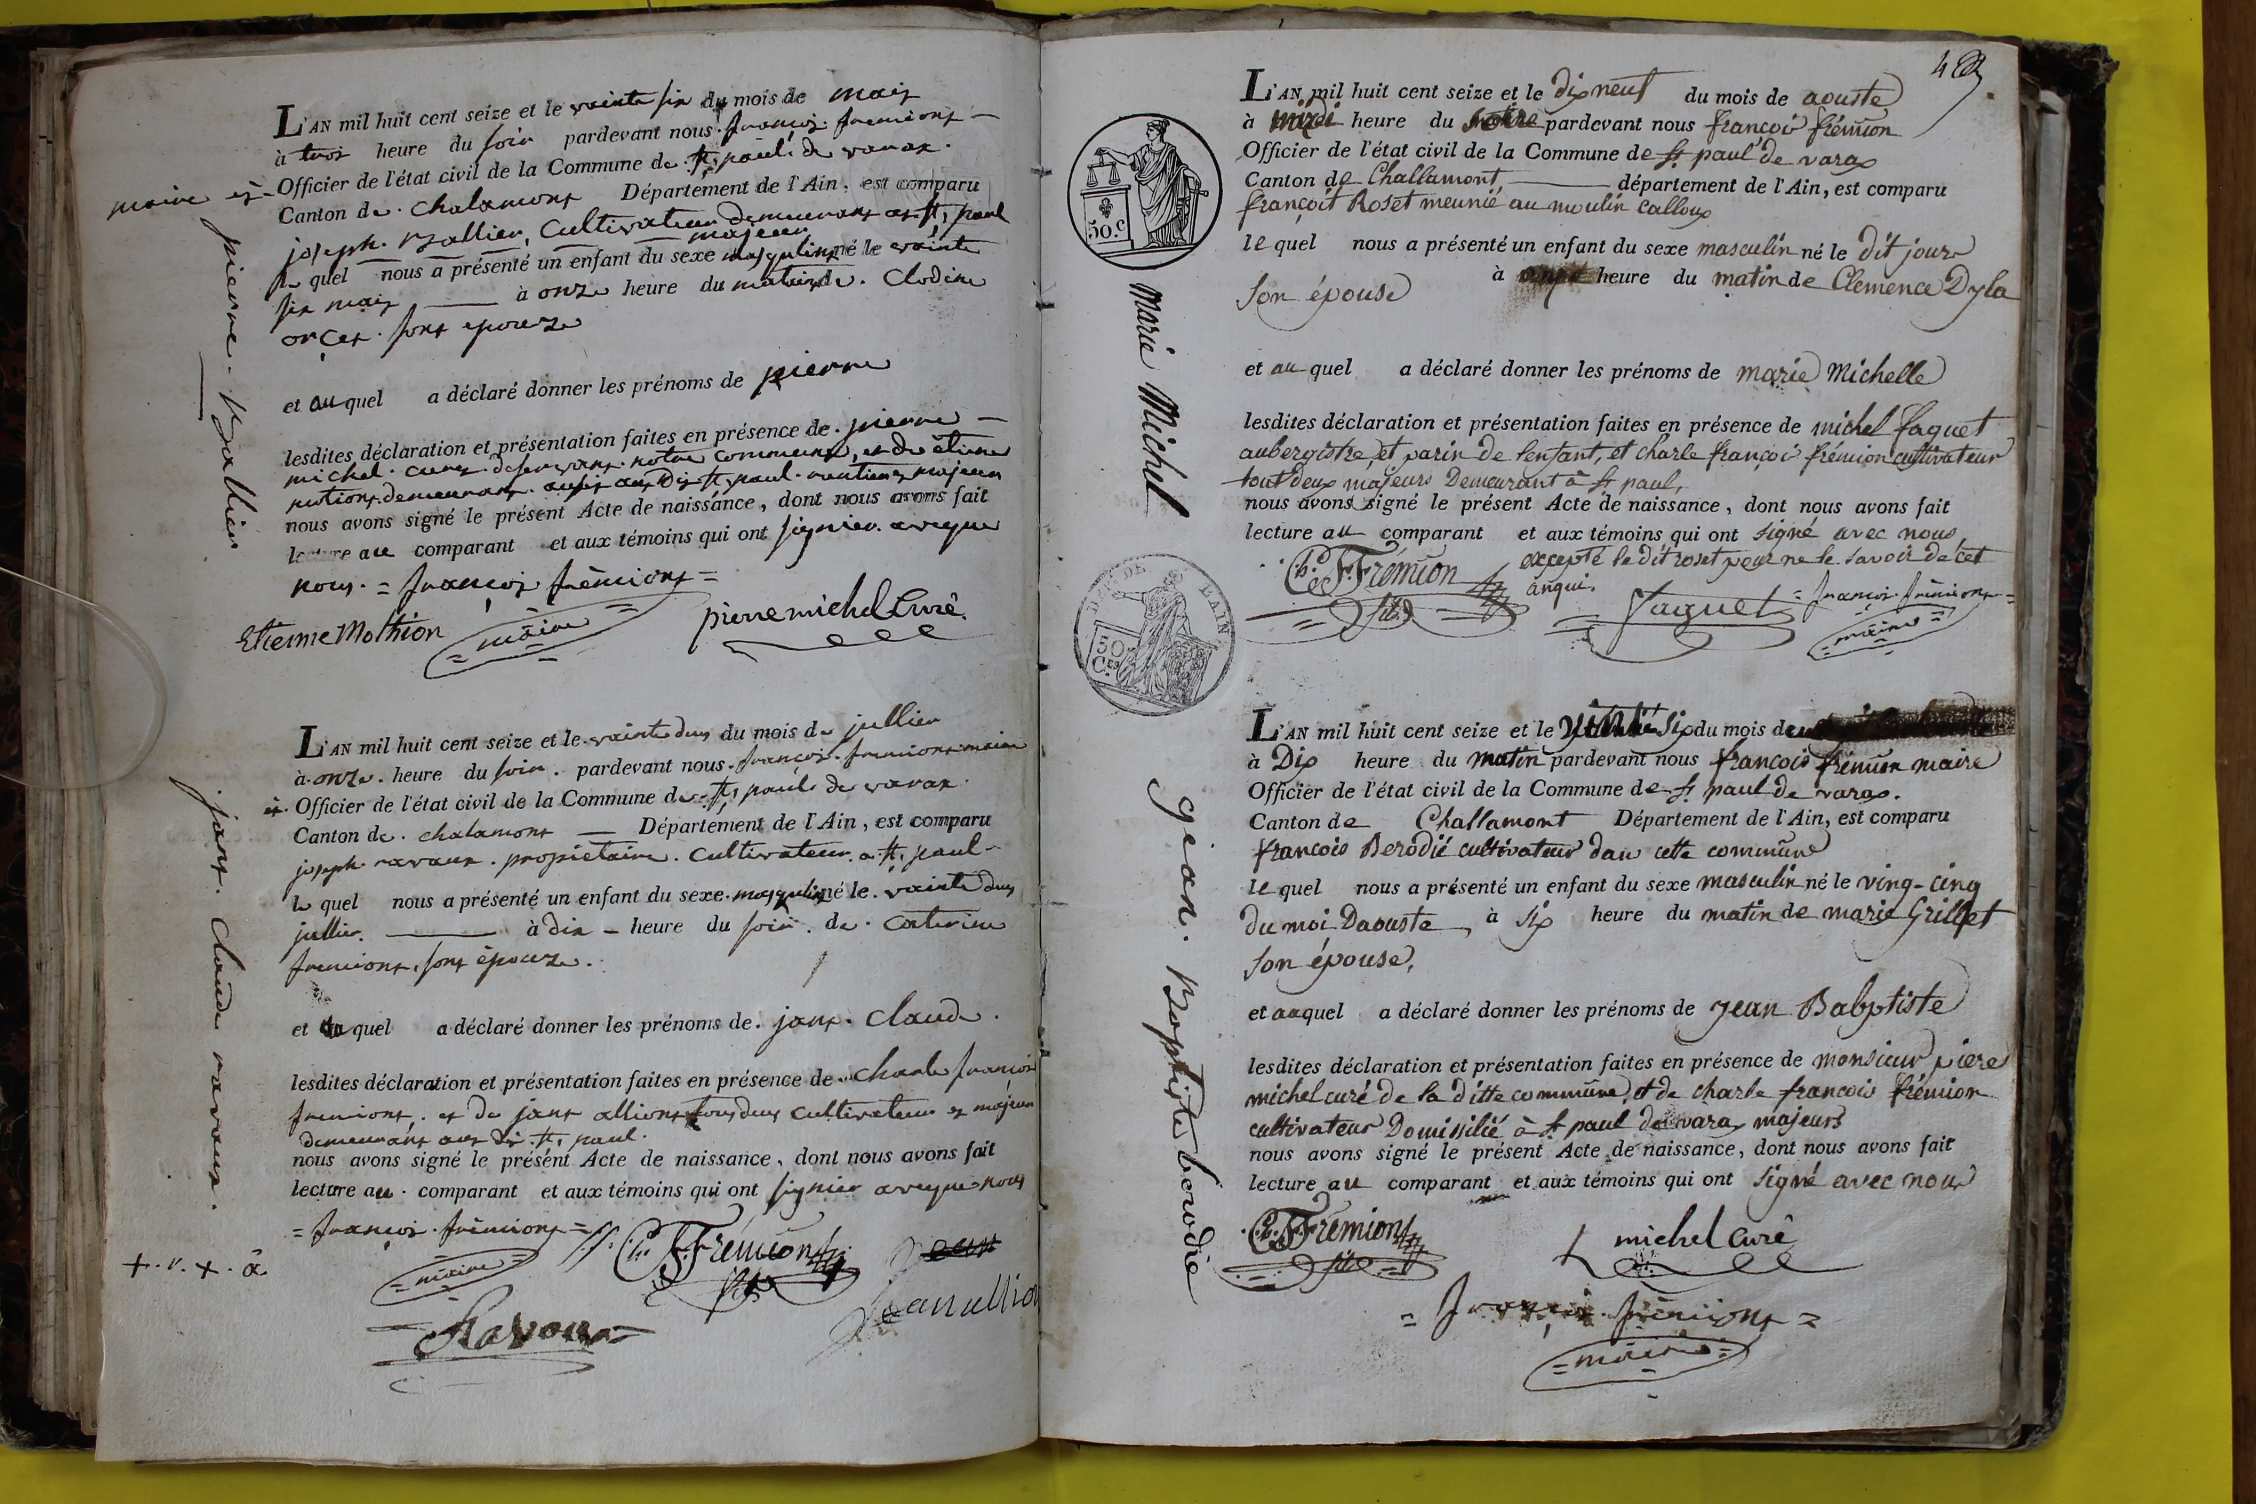 L'AN mil huit cent seize et le vainte six du mois de mais
à trois heure du soir pardevant nous françois fremiont
maire et Officier de l'état civil de la Commune de st paul de varax
Canton de chalamont Département de l'Ain, est comparu
joseph Ballier, Cultivateur demeurant a st paul
majeur
le quel nous a présenté un enfant du sexe masqulin né le vainte
six mais à onze heure du matin de Clodine
orcet sont epouze
et au quel a déclaré donner les prénoms de pierre
lesdites déclaration et présentation faites en présence de pierre
michel curez deservant notre commune, et de étiene
motion demeurant audit st paul majeur
nous avons signé le présent Acte de naissance, dont nous avons fait
lecture au comparant et aux témoins qui ont signier aveque
nous = françois frémiont =
Etienne Mothion maire pierre michel Curé
pierre Ballier
L'AN mil huit cent seize et le vainte deux du mois de jullier
à onze heure du soir pardevant nous françois fremiont maire
et Officier de l'état civil de la Commune de st paul de varax
Canton de chalamont Département de l'Ain, est comparu
joseph ravaux propiétaire Cultivateur a st paul
le quel nous a présenté un enfant du sexe masqulin né le vainte deux
jullier à dix heure du soir de Caterine
fremiont, sont épouze
et au quel a déclaré donner les prénoms de jant Claude
lesdites déclaration et présentation faites en présence de charle francois
fremiont et de jant alliont tous deux cultivateur et majeur
demeurant aux dit st paul
nous avons signé le présent Acte de naissance, dont nous avons fait
lecture au comparant et aux témoins qui ont signier aveque nous
= françois frémiont = Ch. F. Frémion
+ . v. + . a maire fils
Ravoux Jean allion
jant Claude ravaux
L'AN mil huit cent seize et le dix neuf du mois de aouste
à midi heure du pardevant nous françois frémion
Officier de l'état civil de la Commune de st paul de varax
Canton de Challamont département de l'Ain, est comparu
françoit Roset meunié au moulin calloux
le quel nous a présenté un enfant du sexe masculin né le dit jour
à heure du matin de Clemence Dyla
son épouse
et au quel a déclaré donner les prénoms de marie Michelle
lesdites déclaration et présentation faites en présence de michel faguet
aubergistre, et parin de lenfant, et charle françoi frémion cultivateur
tout deux majeurs Demeurant à st paul,
nous avons signé le présent Acte de naissance, dont nous avons fait
lecture au comparant et aux témoins qui ont signé avec nous
excepté le dit roset pour ne le savoir de cet
anqui.
Ch. F. Frémion fils Faguet = françois frémiont =
maire
50.c
DEP. DE L'AIN
50
Ces
marie Michel
L'AN mil huit cent seize et le vinte six du mois de
à Dix heure du matin pardevant nous francois frémion maire
Officier de l'état civil de la Commune de st paul de varax.
Canton de Challamont Département de l'Ain, est comparu
francois Berodié cultivateur dan cette commune
le quel nous a présenté un enfant du sexe masculin né le ving-cinq
du moi Daouste, à six heure du matin de marie Grillet
son épouse,
et auquel a déclaré donner les prénoms de jean Babptiste
lesdites déclaration et présentation faites en présence de monsieur piere
michel curé de la ditte commune, et de charle francois frémion
cultivateur Domissilié à st paul de varax majeurs
nous avons signé le présent Acte de naissance, dont nous avons fait
lecture au comparant et aux témoins qui ont signé avec nous
Ch. F. Frémion fils michel Curé
= françois frémiont =
= maire =
gean Boptiste berodie